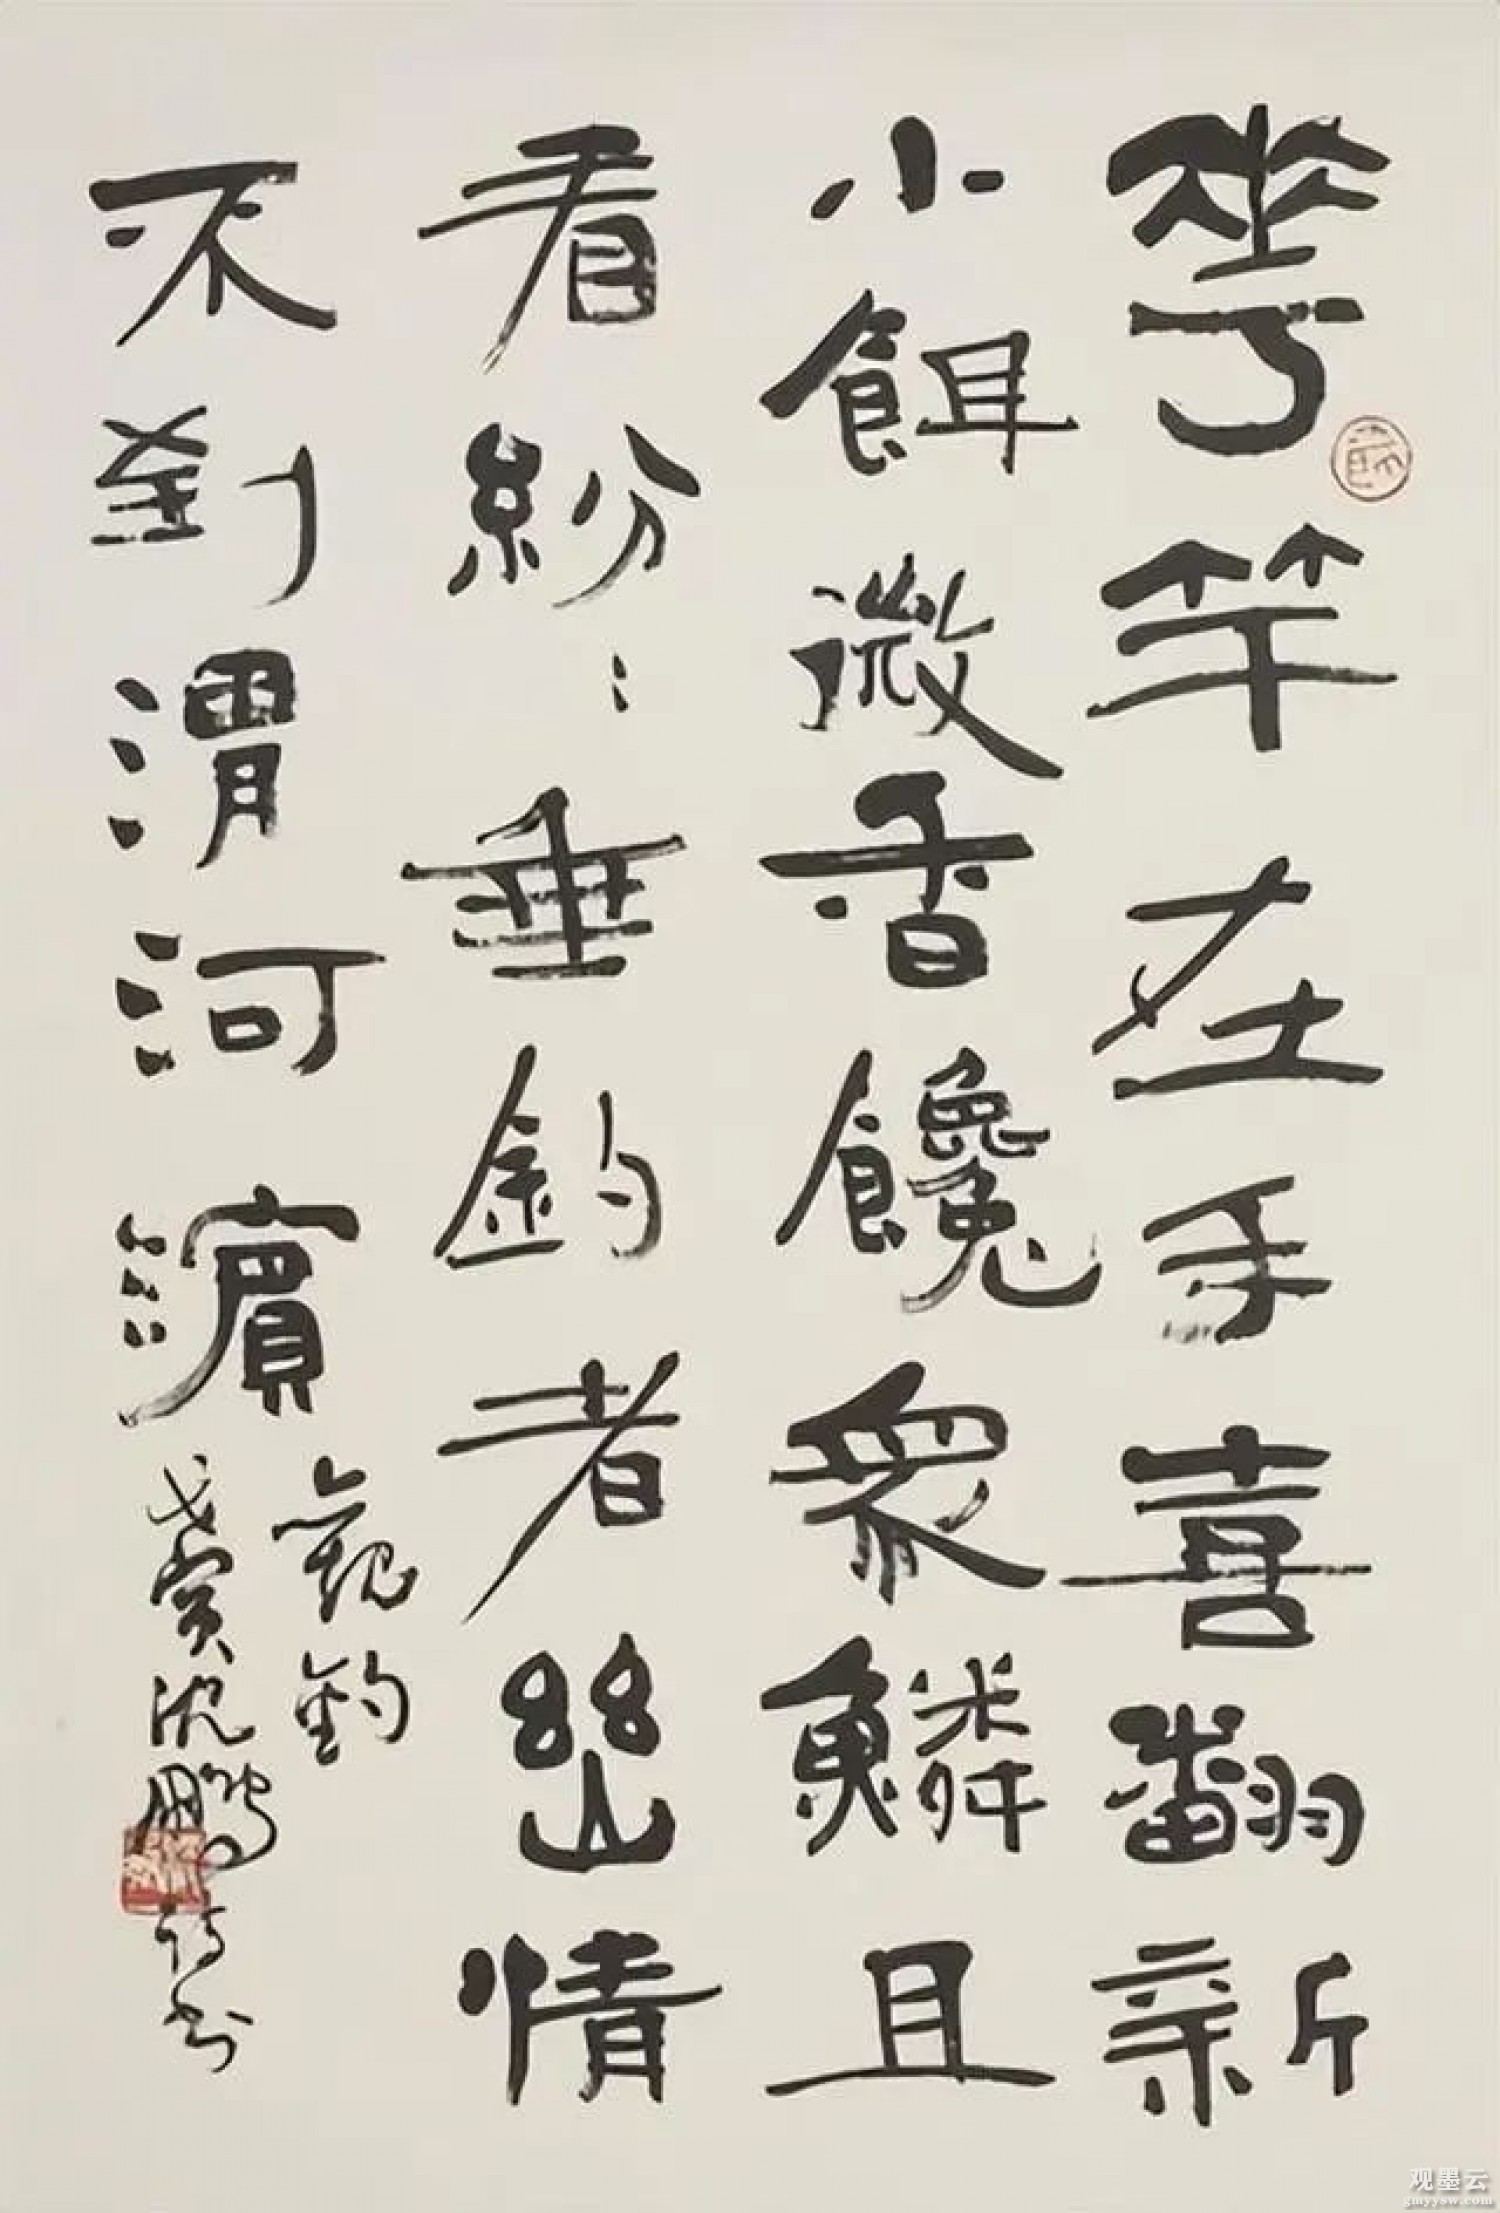 華竿在手喜翻新
小餌微香饞眾鱗且
看紛〻垂釣者幽情
不到渭河濱
觀釣
戊寅沈鵬詩書
观墨云
gmyysw.com